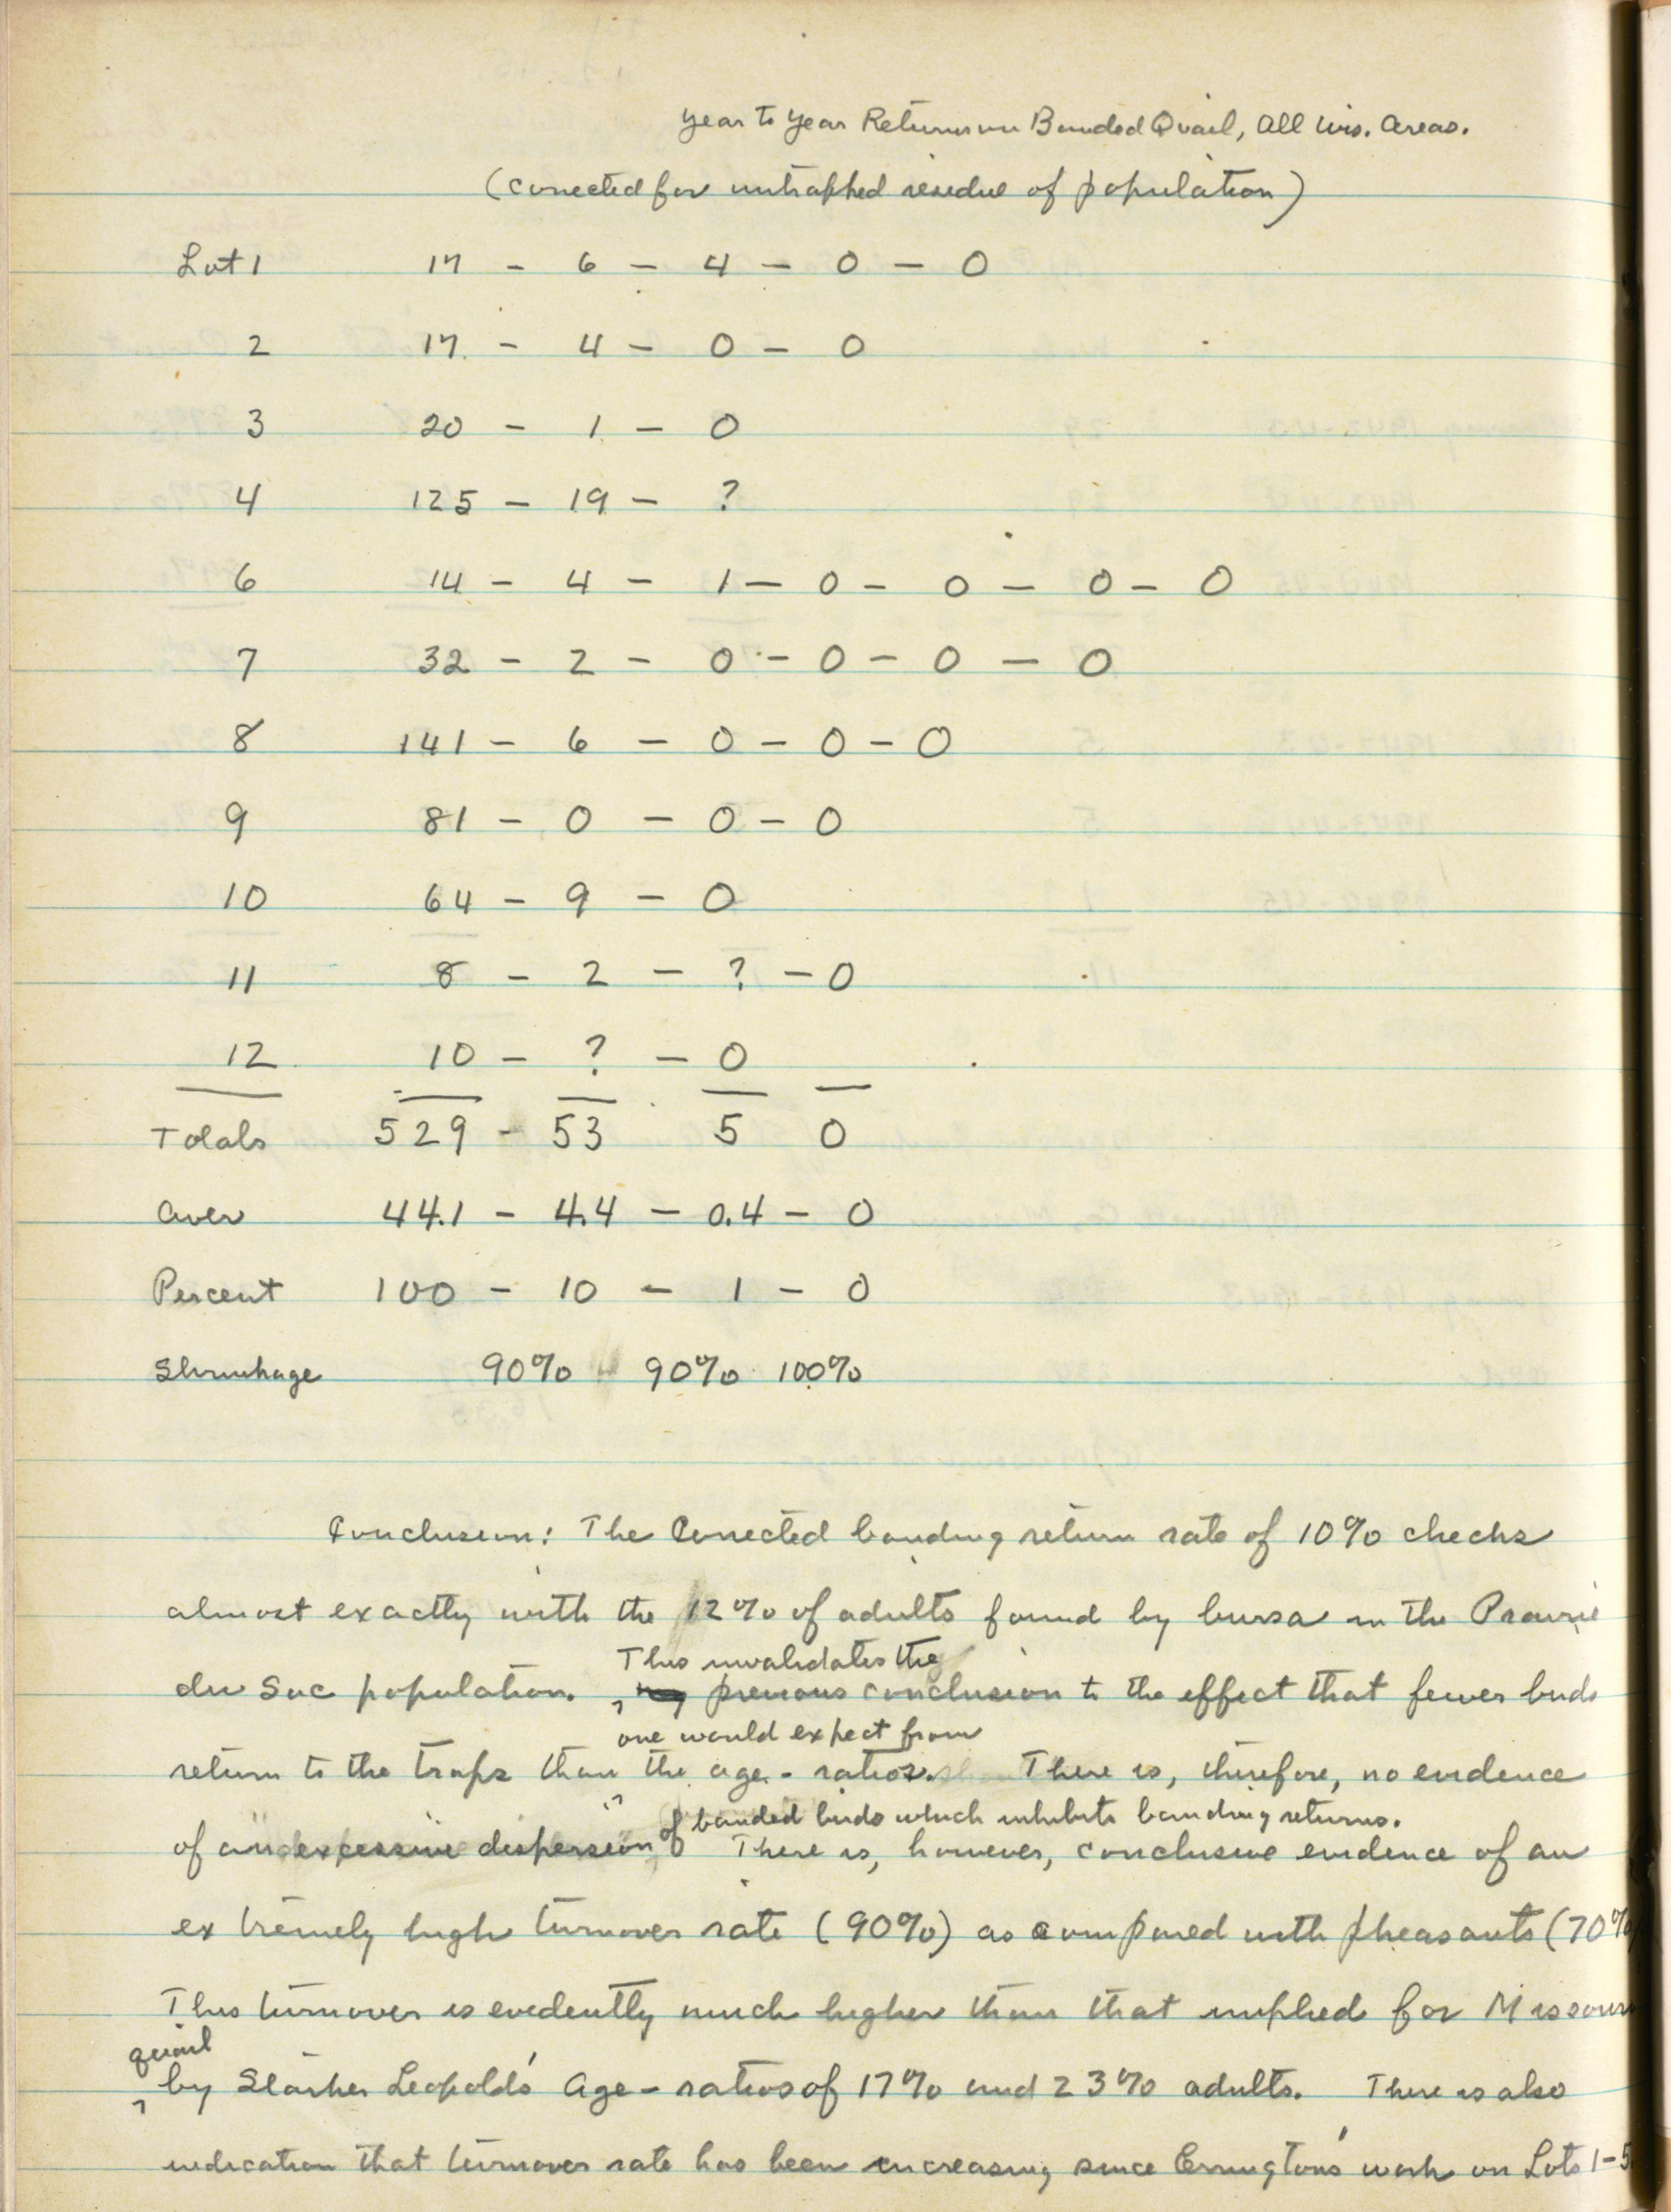 Year to Year Returns on Banded Quail, All Wis. Areas.
(corrected for untrapped residue of population)
Lot 1 17 - 6 - 4 - 0 - 0
2 17 - 4 - 0 - 0
3 20 - 1 - 0
4 125 - 19 - ?
6 14 - 4 - 1 - 0 - 0 - 0 - 0
7 32 - 2 - 0 - 0 - 0 - 0
8 141 - 6 - 0 - 0 - 0
9 81 - 0 - 0 - 0
10 64 - 9 - 0
11 8 - 2 - ? - 0
12 10 - ? - 0
Totals 529 - 53 5 0
Aver 44.1 - 4.4 - 0.4 - 0
Percent 100 - 10 - 1 - 0
Shrinkage 90% 90% 100%
Conclusion: The Corrected banding return rate of 10% checks
almost exactly with the 12% of adults found by bursa in the Prairie
This invalidates the
du Sac population. previous conclusion to the effect that fewer birds
one would expect from
return to the traps than the age-ratios. There is, therefore, no evidence
of banded birds which inhibits banding returns.
of an excessive dispersion There is, however, conclusive evidence of an
extremely high turnover rate (90%) as compared with pheasants (70%
This turnover is evidently much higher than that implied for Missouri
quail
by Starker Leopold's age-ratios of 17% and 23% adults. There is also
indication that turnover rate has been increasing since Errington's work on Lots 1-5